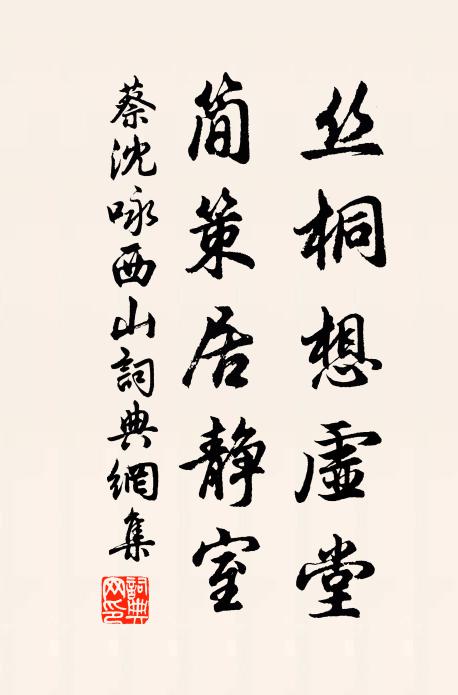 丝桐想虚堂
简策居静室
蔡沈咏西山詞典網集
詞典网印